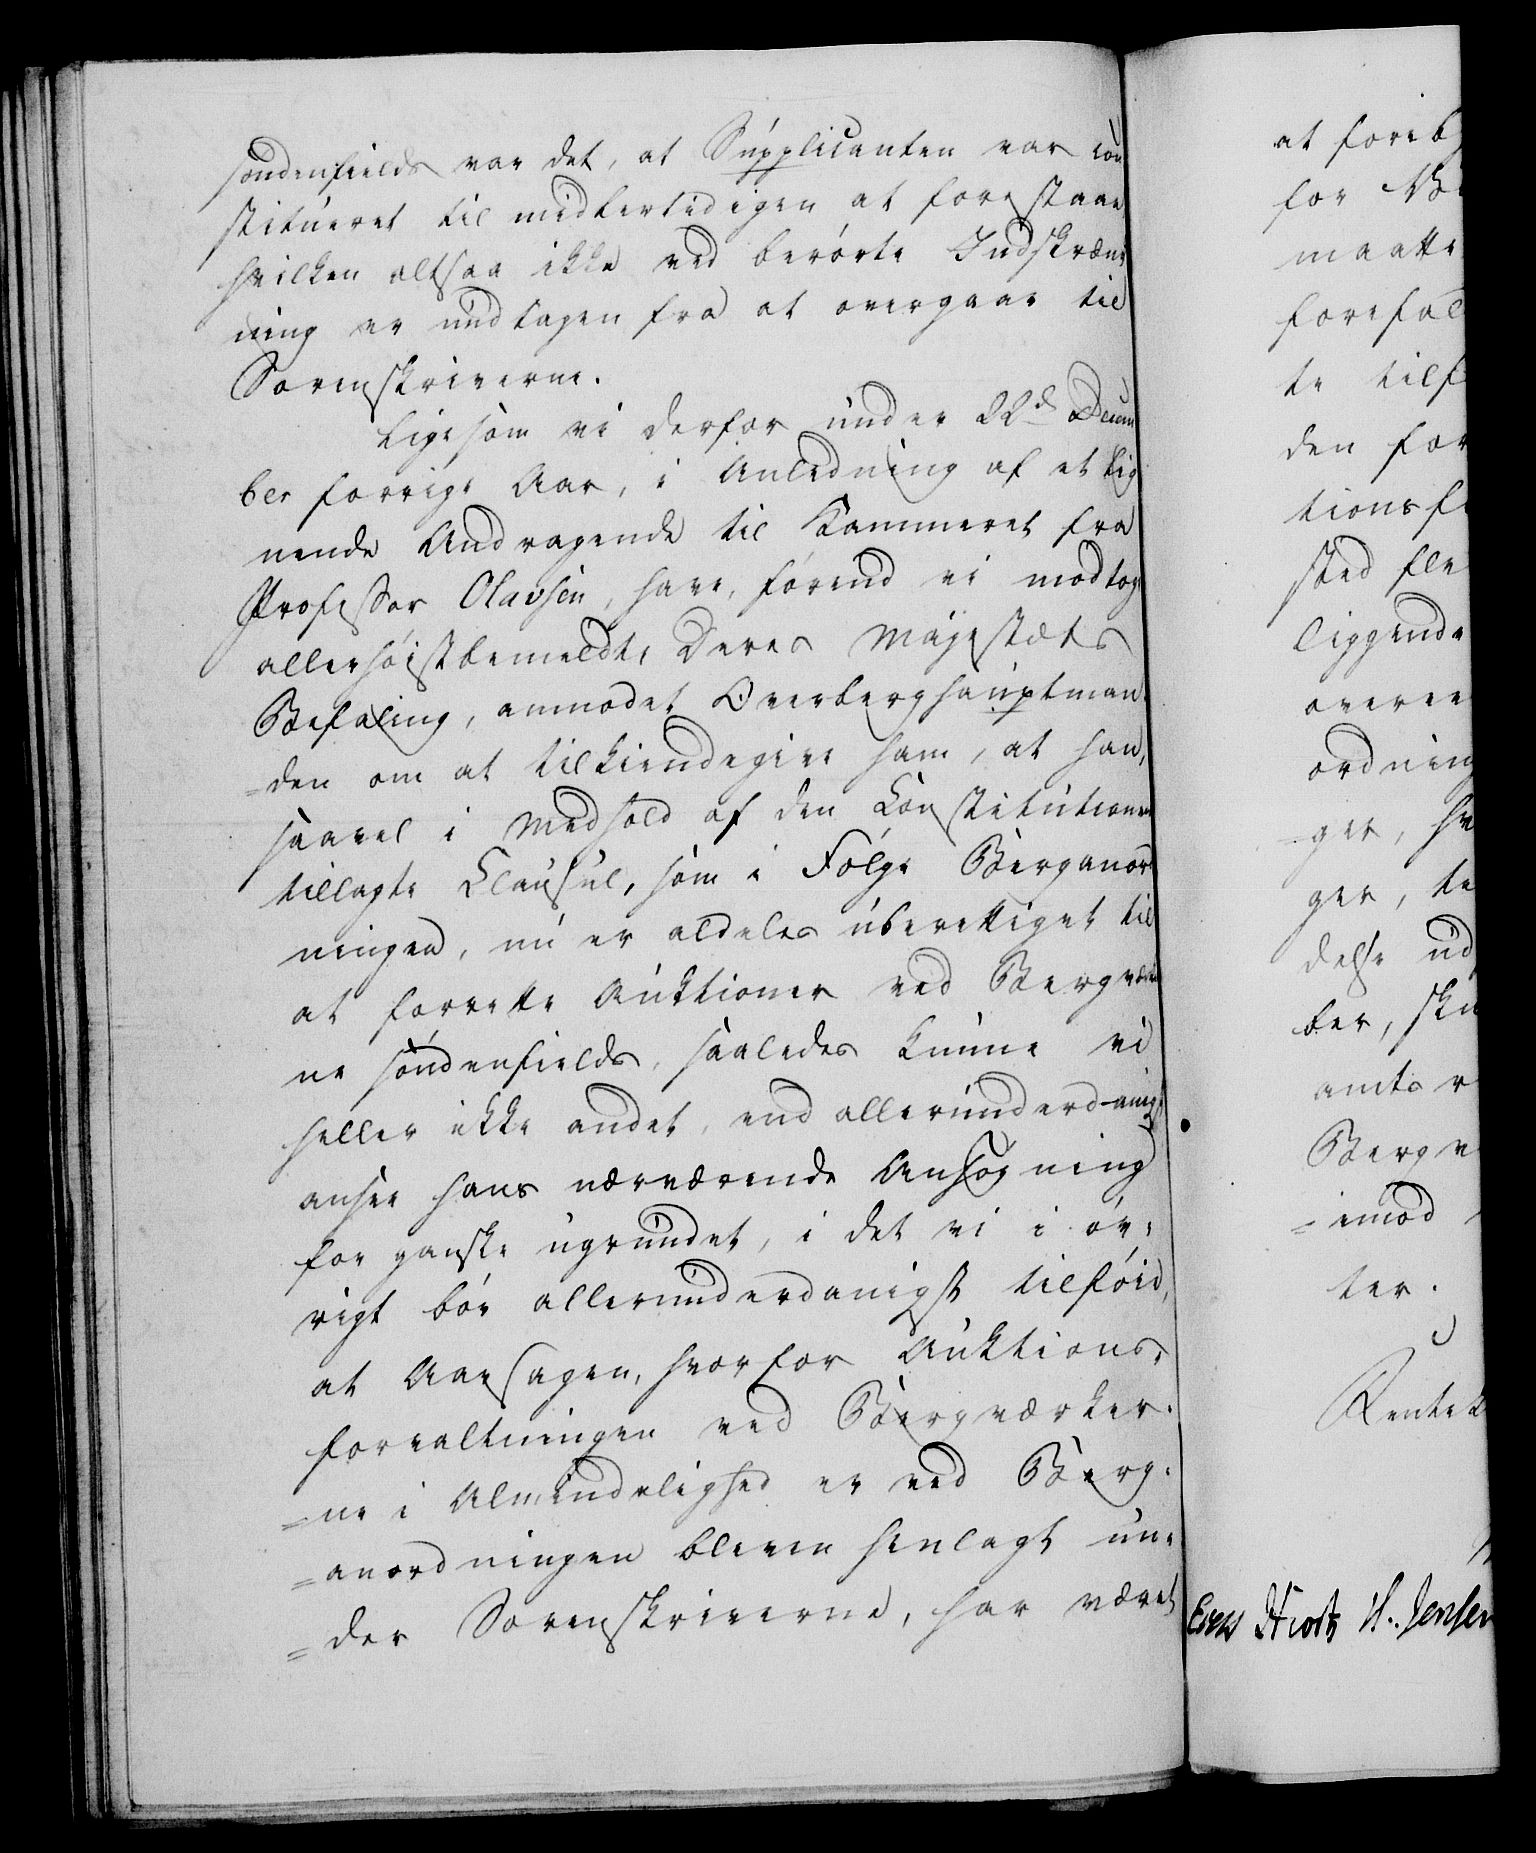 søndenfields var det, at Supplicanten var con
stitueret til midlertidigen at forestaae,
hvilken altsaa ikke ved berørte Indskrænk
ning er undtagen fra at overgaae til
Sorenskriverne.
Ligesom vi derfor under 22d Decem
ber forrige Aar, i Anledning af et lig
nende Andragende til Kammeret fra
Professor Olavsen, have, førend vi modtog
allerhøistbemeldte Deres Majestæts
Befaling, anmodet Overberghauptman
=den om at tilkiendegive ham, at han,
saavel i Medhold af den Constitutionen
tillagte Clausul, som i Følge Berganord
ningen, nu er aldeles uberettiget til
at forrette Auktioner ved Bergværker
ne søndenfields, saaledes kunne vi
heller ikke andet, end allerunderdanigst
ansee hans nærværende Ansøgning
for ganske ugrundet, i det vi i øv=
rigt bør allerunderdanigst tilføie,
at Aarsagen, hvorfor Auktions=
forvaltningen ved Bergværker=
=ne i Almindelighed er ved Berg=
=anordningen bleven henlagt un=
=der Sorenskriverne, har været
at foreby
for
maatte
forefal
te tilf
den for
tionsf
sted fle
liggende
overee
ordning
=ger, hv
ger, te
delse ud
ber, sku
amts
Bergv
=imod
ter.
Rentek
Hiort H. Jensen